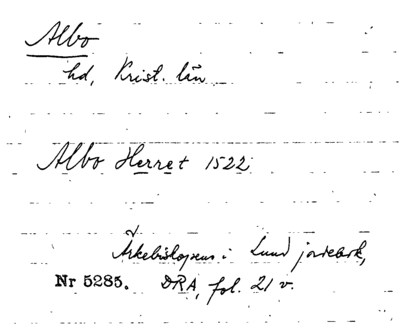 Albo
hd, Krist. län
Albo Herret 1522
Ärkebiskopens i Lund jordebok,
Nr 5285. DRA, fol. 21 v.